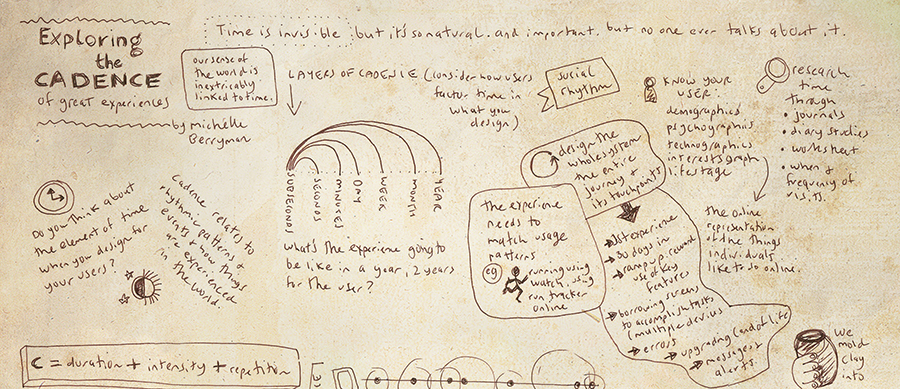 Exploring
the
CADENCE
of great experiences
by michelle
Berryman
Time is invisible, but it's so natural and important, but no one ever talks about it.
our sense of
the world is
inextricably
linked to time.
LAYERS OF CADENCE (consider how users
factor time in
what you
design)
social
rhythm
KNOW YOUR
USER:
demographics
psychographics
technographics
interestsgraph
lifestage
research
time
through
• journals
• diary studies
• worksheet
• when &
frequency of
visits.
SUBSECONDS
SECONDS
MINUTES
DAY
WEEK
MONTH
YEAR
what's the experience going to
be like in a year, 2 years
for the user?
Do you think about
the element of time
when you design for
your users?
Cadence relates to
rhythmic patterns of
events & how things
are experienced
in the world.
design the
whole system
the entire
journey &
its touchpoints
the experience
needs to
match usage
patterns
eg
running using
watch, using
run tracker
online
1st experience
30 days in
ramp up, reward
use of key
features
borrowing screens
to accomplish tasks
(multiple devices
errors
upgrading (end of life
messages &
alerts.
the online
representation
of the things
individuals
like to do online.
C = duration + intensity + repetition
We
mold
clay
into